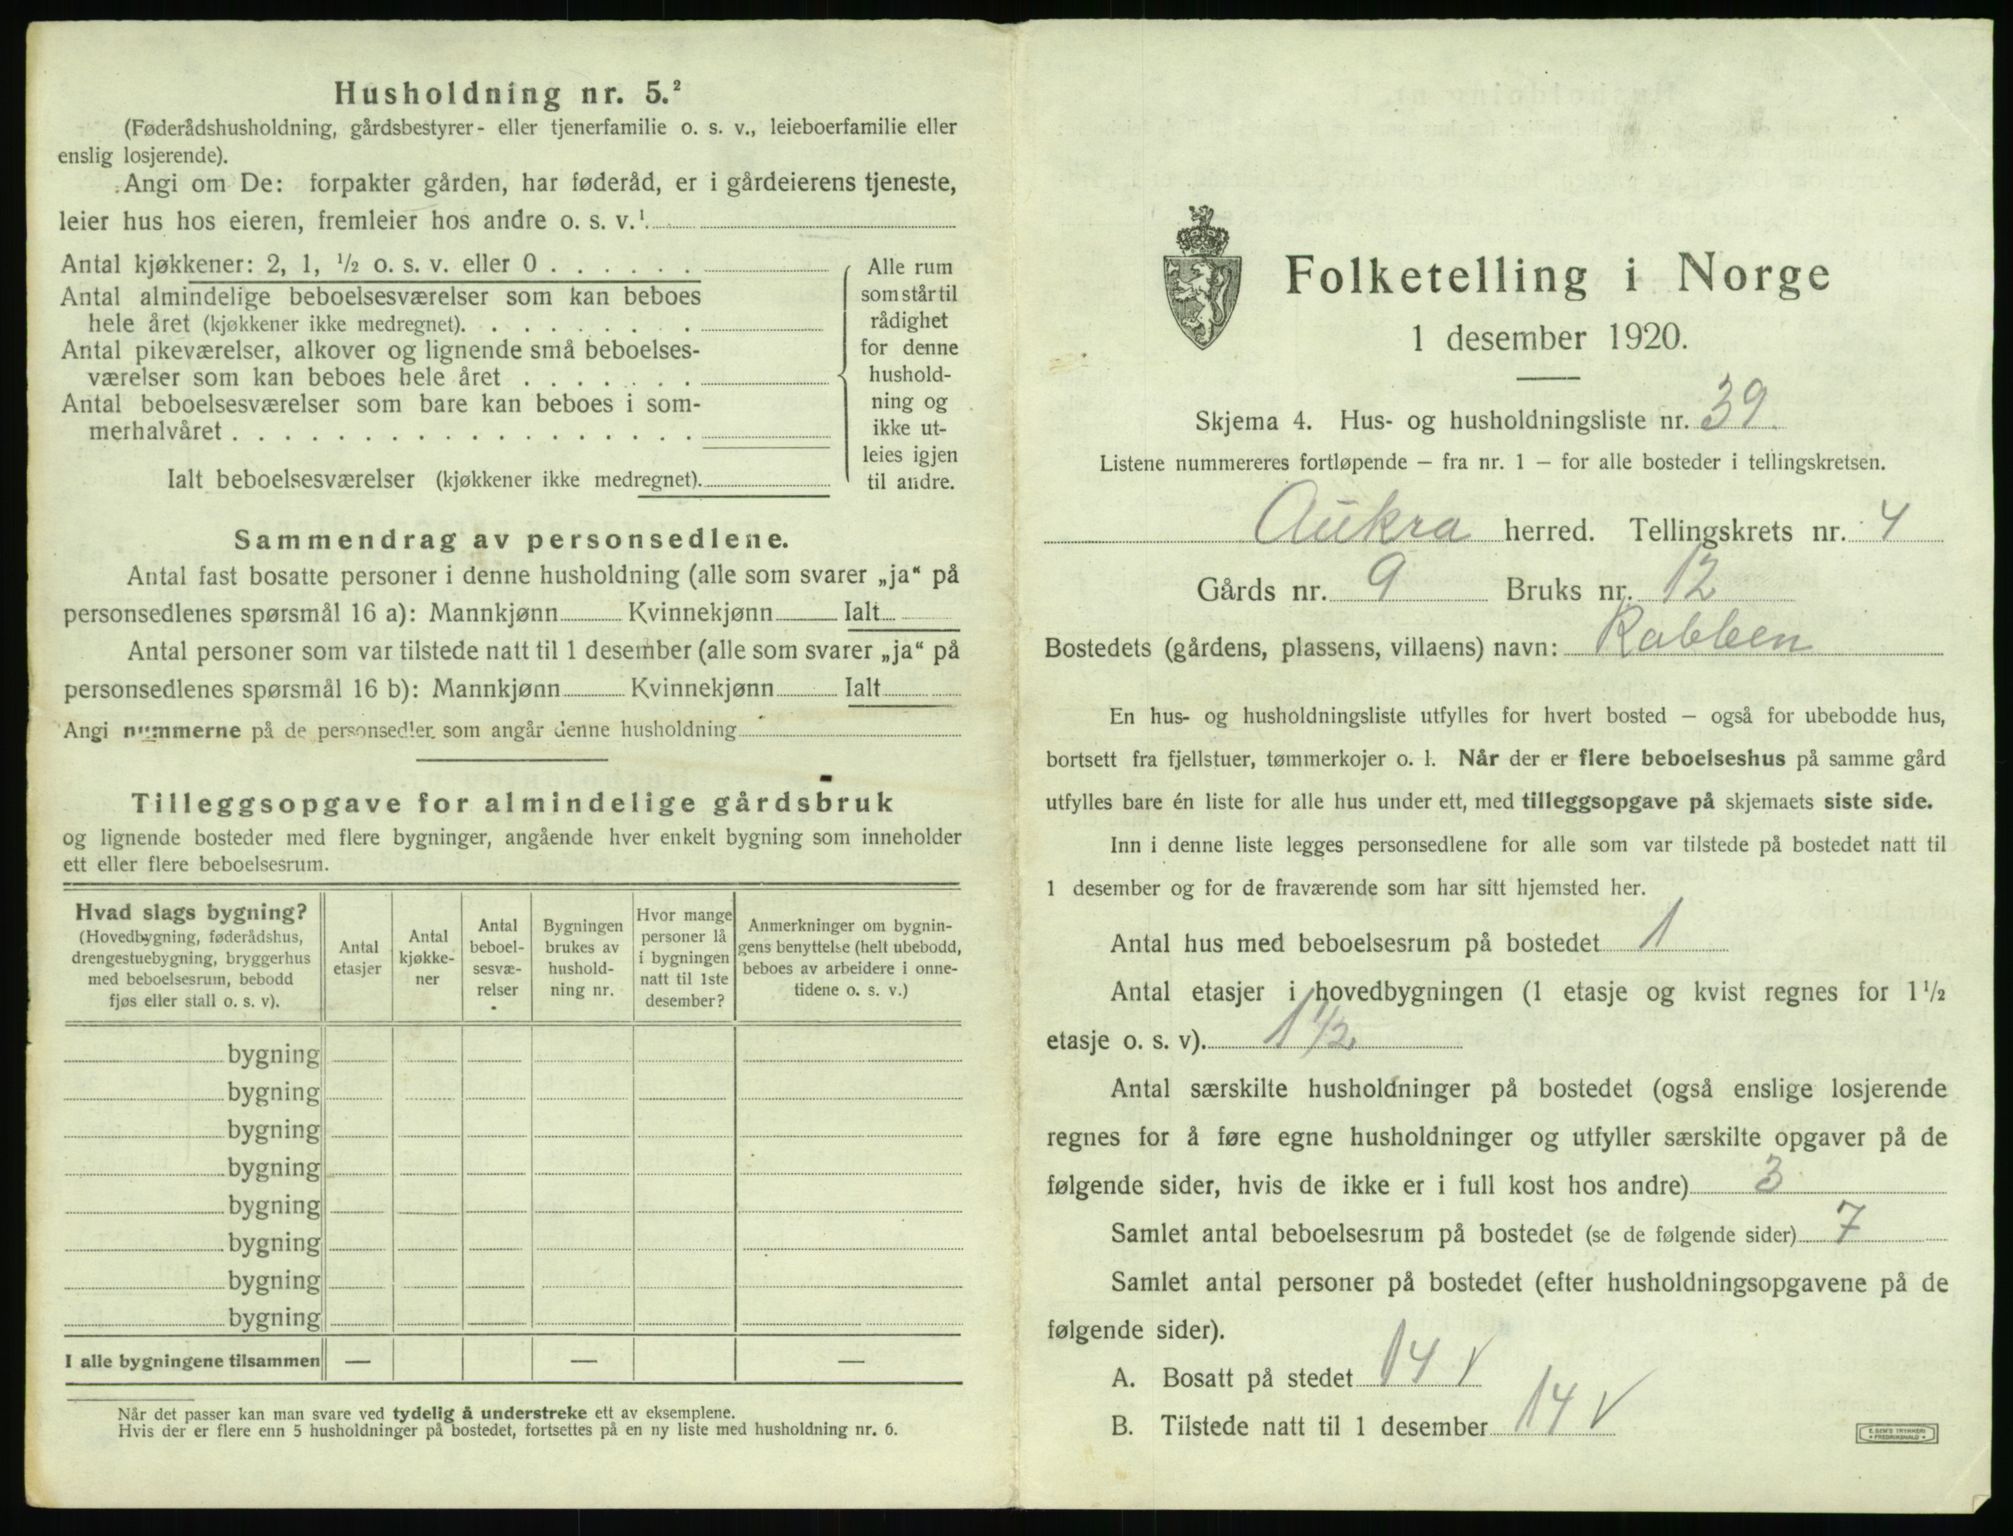 Husholdning nr. 5.²
(Føderådshusholdning, gårdsbestyrer- eller tjenerfamilie o. s. v., leieboerfamilie eller
enslig losjerende).
Angi om De: forpakter gården, har føderåd, er i gårdeierens tjeneste,
leier hus hos eieren, fremleier hos andre o. s. v.¹
Antal kjøkkener: 2, 1, ½ o. s. v. eller 0 . . . . . .
Antal almindelige beboelsesværelser som kan beboes
hele året (kjøkkener ikke medregnet). . . . . . . . .
Antal pikeværelser, alkover og lignende små beboelses-
værelser som kan beboes hele året . . . . . . .
Antal beboelsesværelser som bare kan beboes i som-
merhalvåret . . . . . . . . . . . . . . . . . .
Ialt beboelsesværelser (kjøkkener ikke medregnet).
Alle rum
som står til
rådighet
for denne
hushold-
ning og
ikke ut-
leies igjen
til andre.
Sammendrag av personsedlene.
Antal fast bosatte personer i denne husholdning (alle som svarer „ja“ på
personsedlenes spørsmål 16 a): Mannkjønn Kvinnekjønn Ialt
Antal personer som var tilstede natt til 1 desember (alle som svarer „ja“ på
personsedlenes spørsmål 16 b): Mannkjønn Kvinnekjønn Ialt
Angi nummerne på de personsedler som angår denne husholdning
Tilleggsopgave for almindelige gårdsbruk
og lignende bosteder med flere bygninger, angående hver enkelt bygning som inneholder
ett eller flere beboelsesrum.
Hvad slags bygning?
(Hovedbygning, føderådshus,
drengestuebygning, bryggerhus
med beboelsesrum, bebodd
fjøs eller stall o. s. v).
Antal
etasjer
Antal
kjøkke-
ner
Antal
beboel-
sesvæ-
relser
Bygningen
brukes av
hushold-
ning nr.
Hvor mange
personer lå
i bygningen
natt til 1ste
desember?
Anmerkninger om bygnin-
gens benyttelse (helt ubebodd,
beboes av arbeidere i onne-
tidene o. s. v.)
bygning
bygning
bygning
bygning
bygning
bygning
bygning
bygning
I alle bygningene tilsammen — — —
Når det passer kan man svare ved tydelig å understreke ett av eksemplene.
Hvis der er flere enn 5 husholdninger på bostedet, fortsettes på en ny liste med husholdning nr. 6.
Folketelling i Norge
1 desember 1920.
Skjema 4. Hus- og husholdningsliste nr. 39.
Listene nummereres fortløpende – fra nr. 1 – for alle bosteder i tellingskretsen.
Aukra herred. Tellingskrets nr. 4
Gårds nr. 9 Bruks nr. 12
Bostedets (gårdens, plassens, villaens) navn: Rabben
En hus- og husholdningsliste utfylles for hvert bosted – også for ubebodde hus,
bortsett fra fjellstuer, tømmerkojer o. l. Når der er flere beboelseshus på samme gård
utfylles bare én liste for alle hus under ett, med tilleggsopgave på skjemaets siste side.
Inn i denne liste legges personsedlene for alle som var tilstede på bostedet natt til
1 desember og for de fraværende som har sitt hjemsted her.
Antal hus med beboelsesrum på bostedet 1
Antal etasjer i hovedbygningen (1 etasje og kvist regnes for 1½
etasje o. s. v). 1 1/2
Antal særskilte husholdninger på bostedet (også enslige losjerende
regnes for å føre egne husholdninger og utfyller særskilte opgaver på de
følgende sider, hvis de ikke er i full kost hos andre) 3
Samlet antal beboelsesrum på bostedet (se de følgende sider) 7
Samlet antal personer på bostedet (efter husholdningsopgavene på de
følgende sider).
A. Bosatt på stedet 14 √
B. Tilstede natt til 1 desember 14 √
E. SEM'S TRYKKERI
FREDRIKSHALD